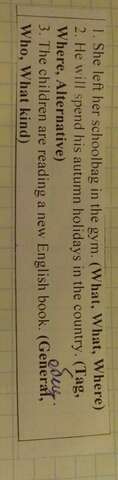 1. She left her schoolbag in the gym. (What, What, Where)
2. He will spend his autumn holidays in the country. (Tag,
Where, Alternative)
3. The children are reading a new English book. (General,
Who, What kind)